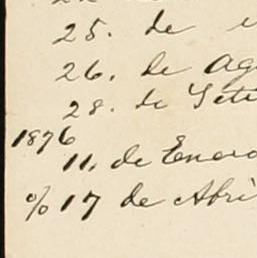 25. de
26. de Ag
28. de Sete
1876
11. de Enero
% 17 de Abri